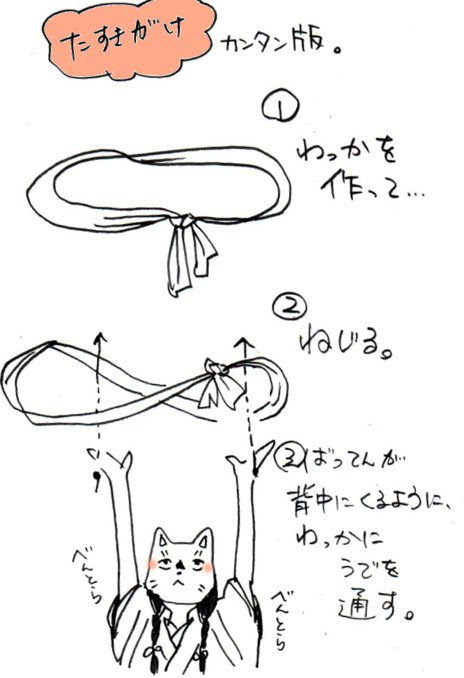 たすきがけ カンタン版。
①
わっかを
作って…
②
ねじる。
③ばってんが
背中にくるように、
わっかに
うでを
通す。
べんとら
べんとら